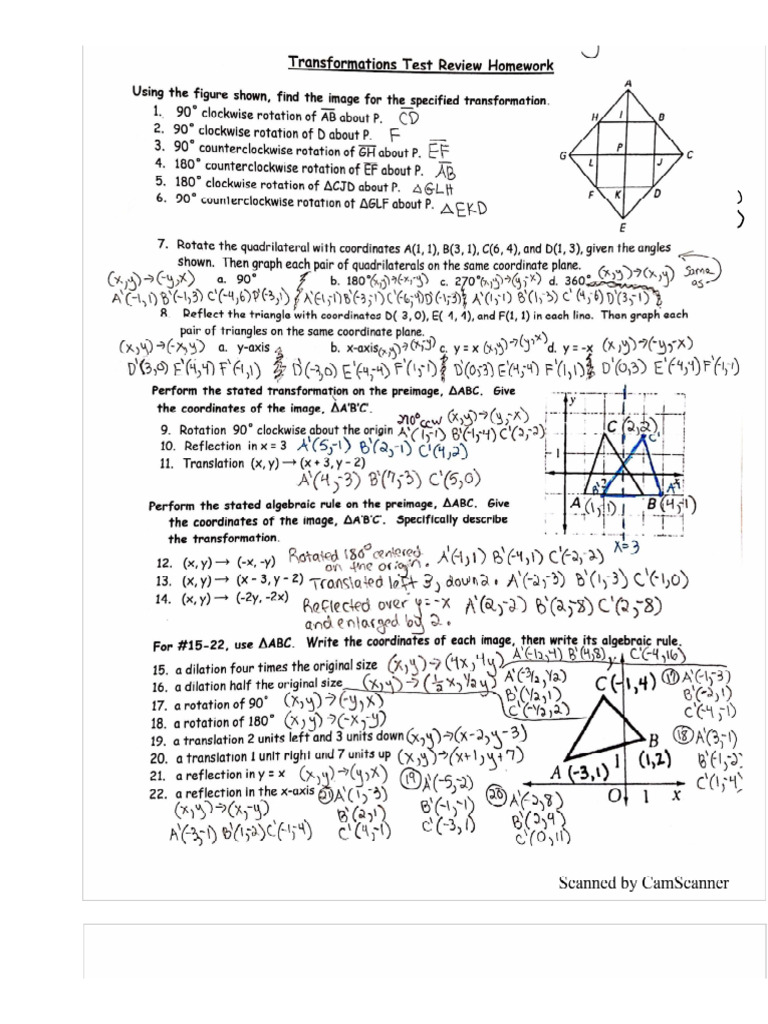 Transformations Test Review Homework
Using the figure shown, find the image for the specified transformation.
1. 90° clockwise rotation of AB about P. CD
2. 90° clockwise rotation of D about P. F
3. 90° counterclockwise rotation of GH about P. EF
4. 180° counterclockwise rotation of EF about P. AB
5. 180° clockwise rotation of ΔCJD about P. ΔGLH
6. 90° counterclockwise rotation of ΔGLF about P. ΔEKD
A
H I B
G P C
L J
F K D
E
7. Rotate the quadrilateral with coordinates A(1, 1), B(3, 1), C(6, 4), and D(1, 3), given the angles
shown. Then graph each pair of quadrilaterals on the same coordinate plane.
(x,y)→(-y,x) a. 90° b. 180° (x,y)→(-x,-y) c. 270° (x,y)→(y,-x) d. 360° (x,y)→(x,y) same as
A'(-1,1) B'(-1,3) C'(-4,6) D'(-3,1) A'(-1,-1) B'(-3,-1) C'(-6,-4) D(-1,-3) A'(1,-1) B'(1,-3) C'(4,-6) D'(3,-1)
8. Reflect the triangle with coordinates D( 3, 0), E( 4, 4), and F(1, 1) in each line. Then graph each
pair of triangles on the same coordinate plane.
(x,y)→(-x,y) a. y-axis b. x-axis (x,y)→(x,-y) c. y = x (x,y)→(y,x) d. y = -x (x,y)→(-y,-x)
D'(3,0) E'(4,4) F'(-1,1) D'(-3,0) E'(-4,-4) F'(1,-1) D'(0,-3) E'(4,-4) F'(1,1) D'(0,3) E'(-4,4) F'(-1,-1)
Perform the stated transformation on the preimage, ΔABC. Give
the coordinates of the image, ΔA'B'C'.
270° ccw (x,y)→(y,-x)
9. Rotation 90° clockwise about the origin A'(-1,-1) B'(-1,-4) C'(2,-2)
10. Reflection in x = 3 A'(5,-1) B'(2,-1) C'(4,2)
11. Translation (x, y) → (x + 3, y - 2)
A'(4,-3) B'(7,-3) C'(5,0)
y
C (2,2) C'
1
B' A' x
A (1,-1) B (4,-1)
x=3
Perform the stated algebraic rule on the preimage, ΔABC. Give
the coordinates of the image, ΔA'B'C'. Specifically describe
the transformation.
12. (x, y) → (-x, -y) Rotated 180° centered on the origin. A'(-1,1) B'(-4,1) C'(-2,-2)
13. (x, y) → (x - 3, y - 2) Translated left 3, down 2. A'(-2,-3) B'(1,-3) C'(-1,0)
14. (x, y) → (-2y, -2x) Reflected over y=-x and enlarged by 2. A'(2,-2) B'(2,-8) C'(2,-8)
For #15-22, use ΔABC. Write the coordinates of each image, then write its algebraic rule.
15. a dilation four times the original size (x,y)→(4x,4y) A'(-12,4) B'(4,8) C'(-4,16)
16. a dilation half the original size (x,y)→(1/2x,1/2y) A'(-3/2,1/2) B'(1/2,1) C'(-1/2,2)
17. a rotation of 90° (x,y)→(-y,x)
18. a rotation of 180° (x,y)→(-x,-y)
19. a translation 2 units left and 3 units down (x,y)→(x-2,y-3)
20. a translation 1 unit right and 7 units up (x,y)→(x+1,y+7)
21. a reflection in y = x (x,y)→(y,x)
22. a reflection in the x-axis
(x,y)→(x,-y)
A'(-3,-1) B'(1,-2) C'(-1,-4)
21 A'(1,-3) B'(2,1) C'(4,-1)
19 A'(-5,-2) B'(-1,-1) C'(-3,1)
20 A'(-2,8) B'(2,9) C'(0,11)
17 A'(-1,-3) B'(-2,1) C'(-4,-1)
18 A'(3,-1) B'(-1,-2) C'(1,-4)
y
C (-1,4)
B (1,2)
A (-3,1)
1
O 1 x
Scanned by CamScanner